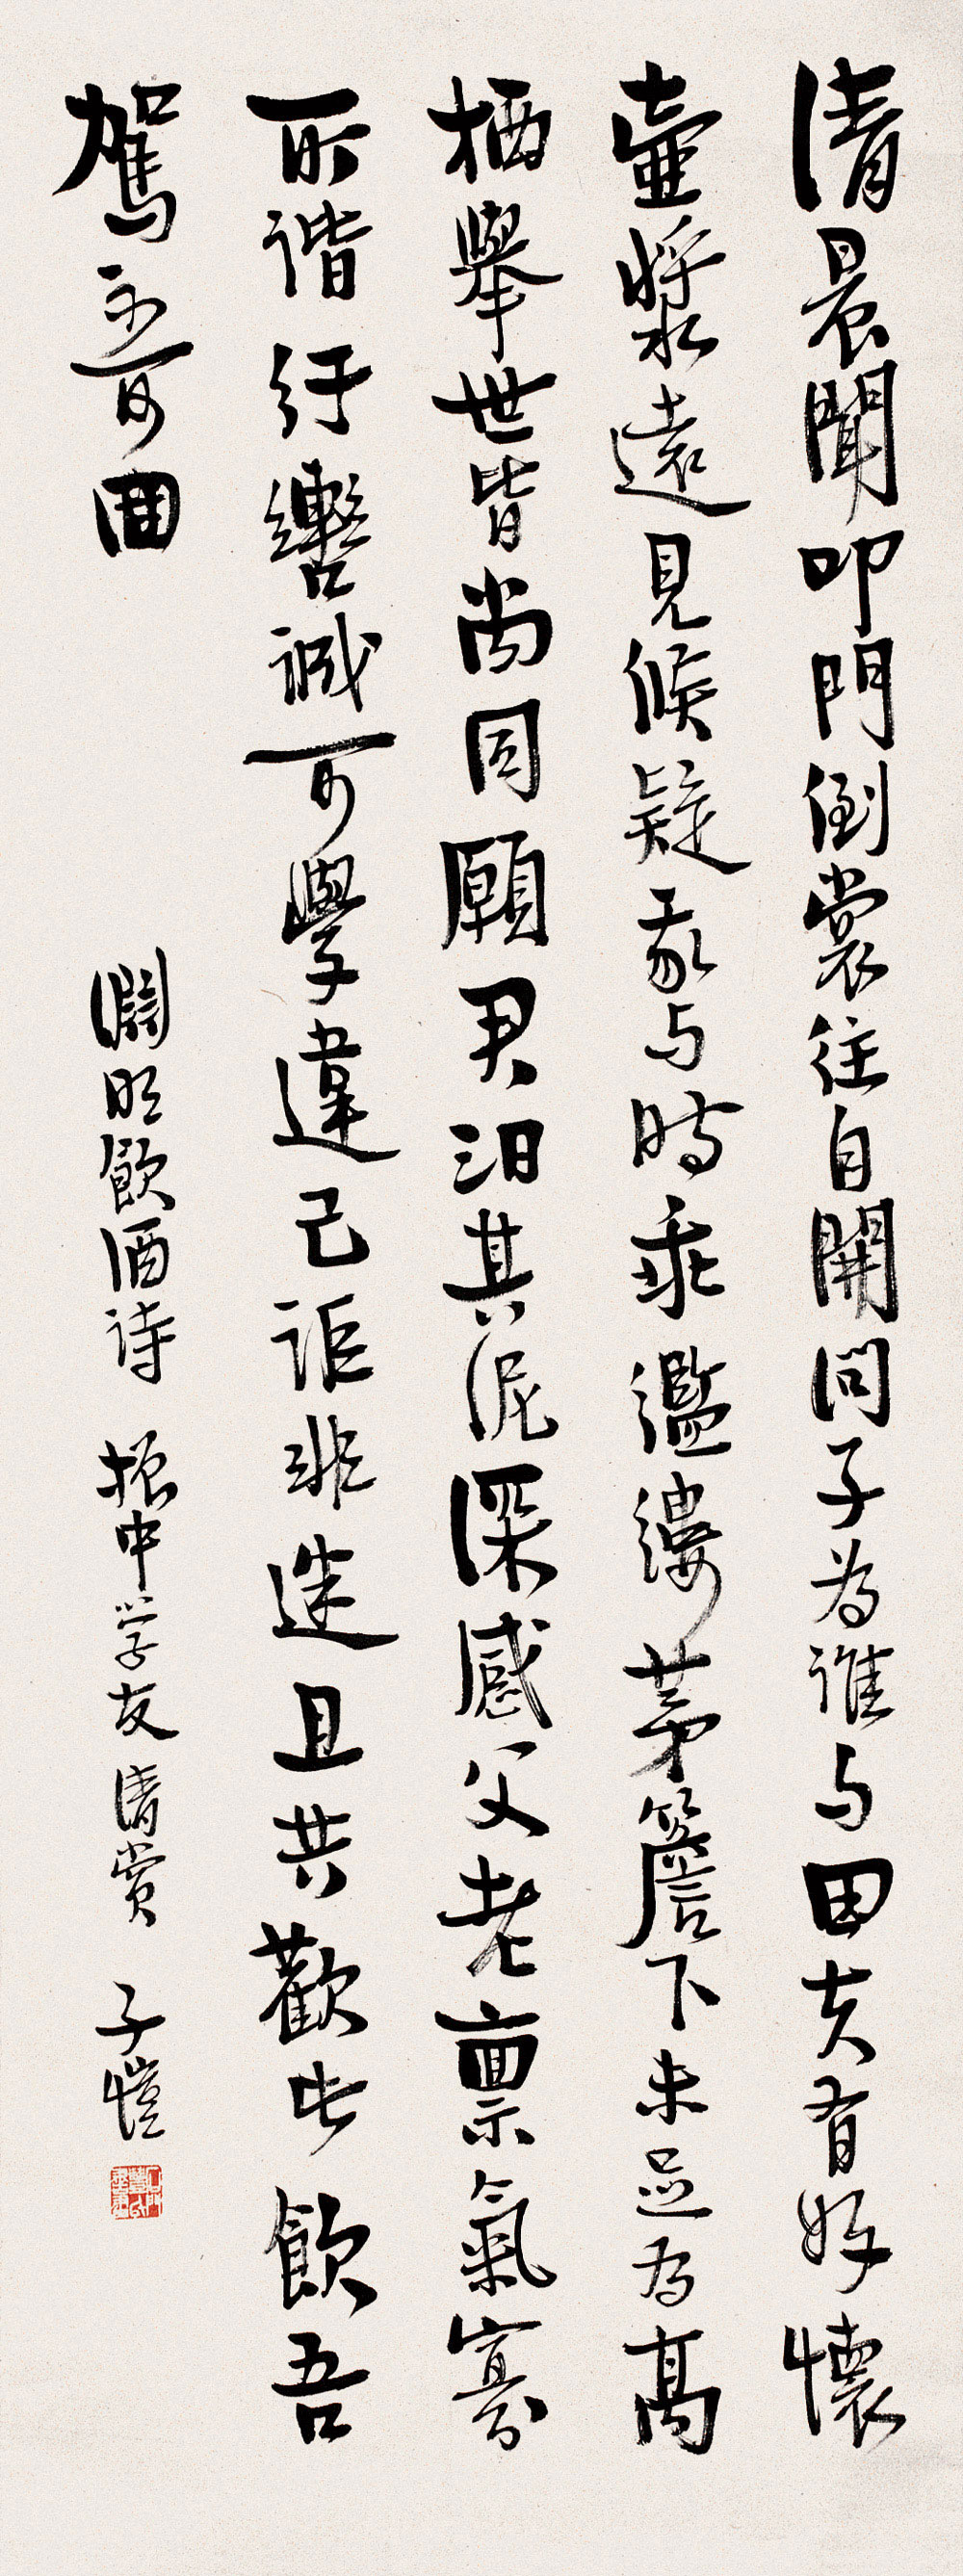 清晨聞叩門倒裳往自開問子為誰与田夫有好懷
壷漿遠見候疑我与時乖濫縷茅簷下未足為高
栖舉世皆尚同願君汩其泥深感父老禀氣寡
所谐紆轡誠可學違己詎非迷且共歡此飲吾
駕不可回
淵明飲酒诗 振中学友清赏 子愷